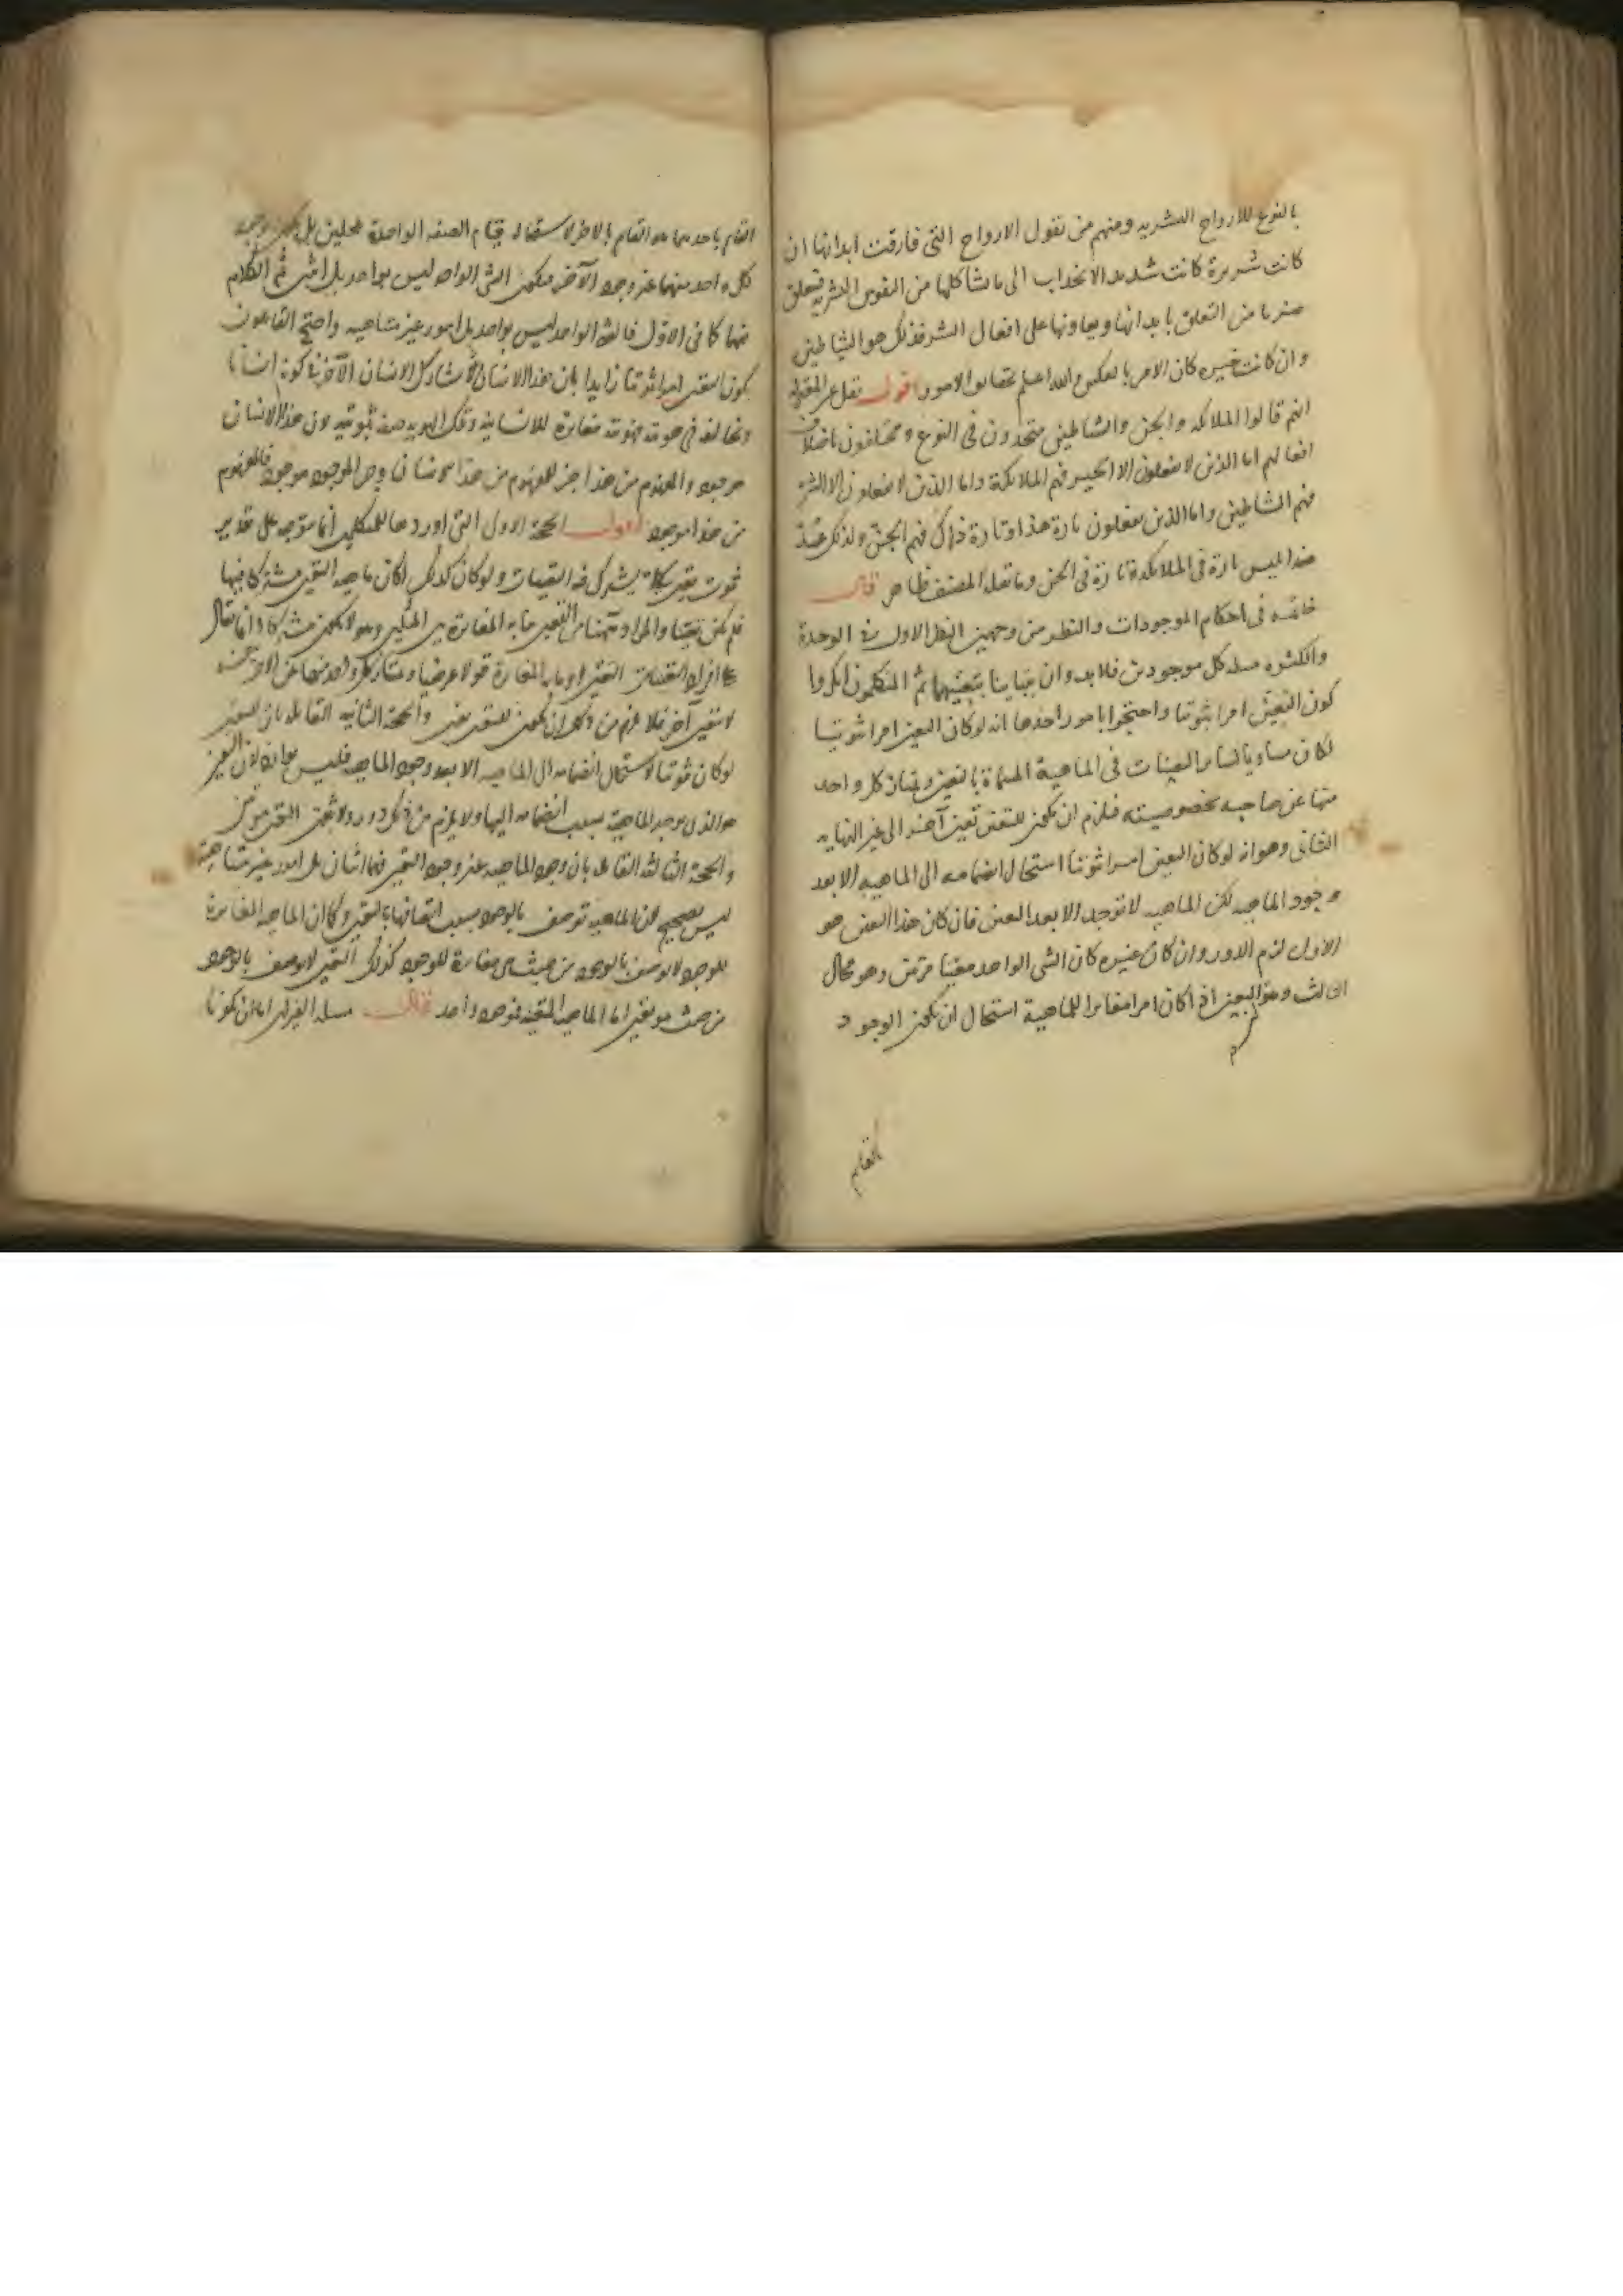 بالنوع للارواح البشريه ومنهم من يقول الارواح التى فارقت ابدانها ان
كانت شريرة كانت شديده الانجذاب الى ما يشاكلها من النفوس البشريه فيتعلق
ضربا من التعلق بابدانها ويعاونها على افعال الشر فذلك هو الشياطين
وان كانت خيره كان الامر بالعكس والله اعلم بحقايق الامور اقول نقل عن المعتزلة
انهم قالوا الملائكه والجن والشياطين متحدون فى النوع ومختلفون باختلاف
افعالهم اما الذين لا يفعلون الا الخير فهم الملائكة واما الذين لا يفعلون الا الشر
فهم الشياطين واما الذين يفعلون تارة هذا وتارة ذاك فهم الجن ولذلك عد
ابليس تارة فى الملائكة وتارة فى الجن وما نقله المصنف ظاهر قال
خاتمه فى احكام الموجودات والنظر من وجهين النظر الاول فى الوحدة
والكثره مسله كل موجودين فلابد وان يتباينا بتعينهما ثم المتكلمون انكروا
كون التعين امرا ثبوتيا واحتجوا بامور احدها انه لو كان التعين امرا ثبوتيا
لكان مساويا لساير التعينات فى الماهية المسماة بالتعين ويمتاز كل واحد
منها عن صاحبه بخصوصيته فلزم ان يكون للتعين تعين آخر الى غير النهايه
الثانى وهو انه لو كان التعين امرا ثبوتيا استحال انضمامه الى الماهيه الا بعد
وجود الماهيه لكن الماهيه لا توجد الا بعد التعين فان كان هذا التعين هو
الاول لزم الدور وان كان غيره كان الشى الواحد معينا مرتين وهو محال
الثالث وهو التعين اذا كان امرا مغايرا للماهية استحال ان يكون الوجود
القايم
القايم باحدهما هو القايم بالاخر لاستحاله قيام الصفه الواحدة بمحلين بل يكون وجود
كل واحد منهما غير وجود الآخر فيكون الشى الواحد ليس بواحد بل اثنين ثم الكلام
فيهما كما فى الاول فالشى الواحد ليس بواحد بل امور غير متناهيه واحتج القايلون
بكون التعين امرا ثبوتيا زايدا بان هذا الانسان يشارك الانسان الآخر فى كونه انسانا
ويخالفه فى هويته وهويته مغايرة للانسانيه وتلك الهويه صفه ثبوتيه لان هذا الانسان
موجود والمفهوم من هذا جزء للمفهوم من هذا الانسان وجزء الموجود موجود فالمفهوم
من هذا موجود اقول الحجة الاول التى اوردها للمتكلمين انما يتوجه على تقدير
ثبوت تعين كلى يشترك فيه التعينات ولو كان كذلك لكان ماهيه التعين مشتركا فيها
فلم يكن تعينا والمراد ههنا من التعين ما به المغايرة بين المثلين وهو لا يكون مشتركا وانما يقال
على افراد التعينات التعين او ما به المغايرة قولا عرضيا ويمتاز كل واحد منها عن الاخر بنفسه
لا بتعين آخر فلا يلزم من ذلك ان يكون للتعين تعين والحجة الثانيه القايله بان التعين
لو كان ثبوتيا لاستحال انضمامه الى الماهيه الا بعد وجود الماهيه فليس بوارد لان التعين
هو الذى يوجد الماهية بسبب انضمامه اليها ولا يلزم من ذلك دور ولا تعين التعين مرتين
والحجة الثالثه القايله بان وجود الماهيه غير وجود التعين فهما اثنان بل امور غير متناهية
ليس بصحيح لان الماهيه توصف بالوجود بسبب اتصافها بالتعين وكما ان الماهيه المغايرة
للوجود لا توصف بالوجود من حيث هى مغايرة للوجود كذلك التعين لا يوصف بالوجود
من حيث هو تعين اما الماهيه المتعينه فموجود واحد قال مسله الغيران اما ان يكونا